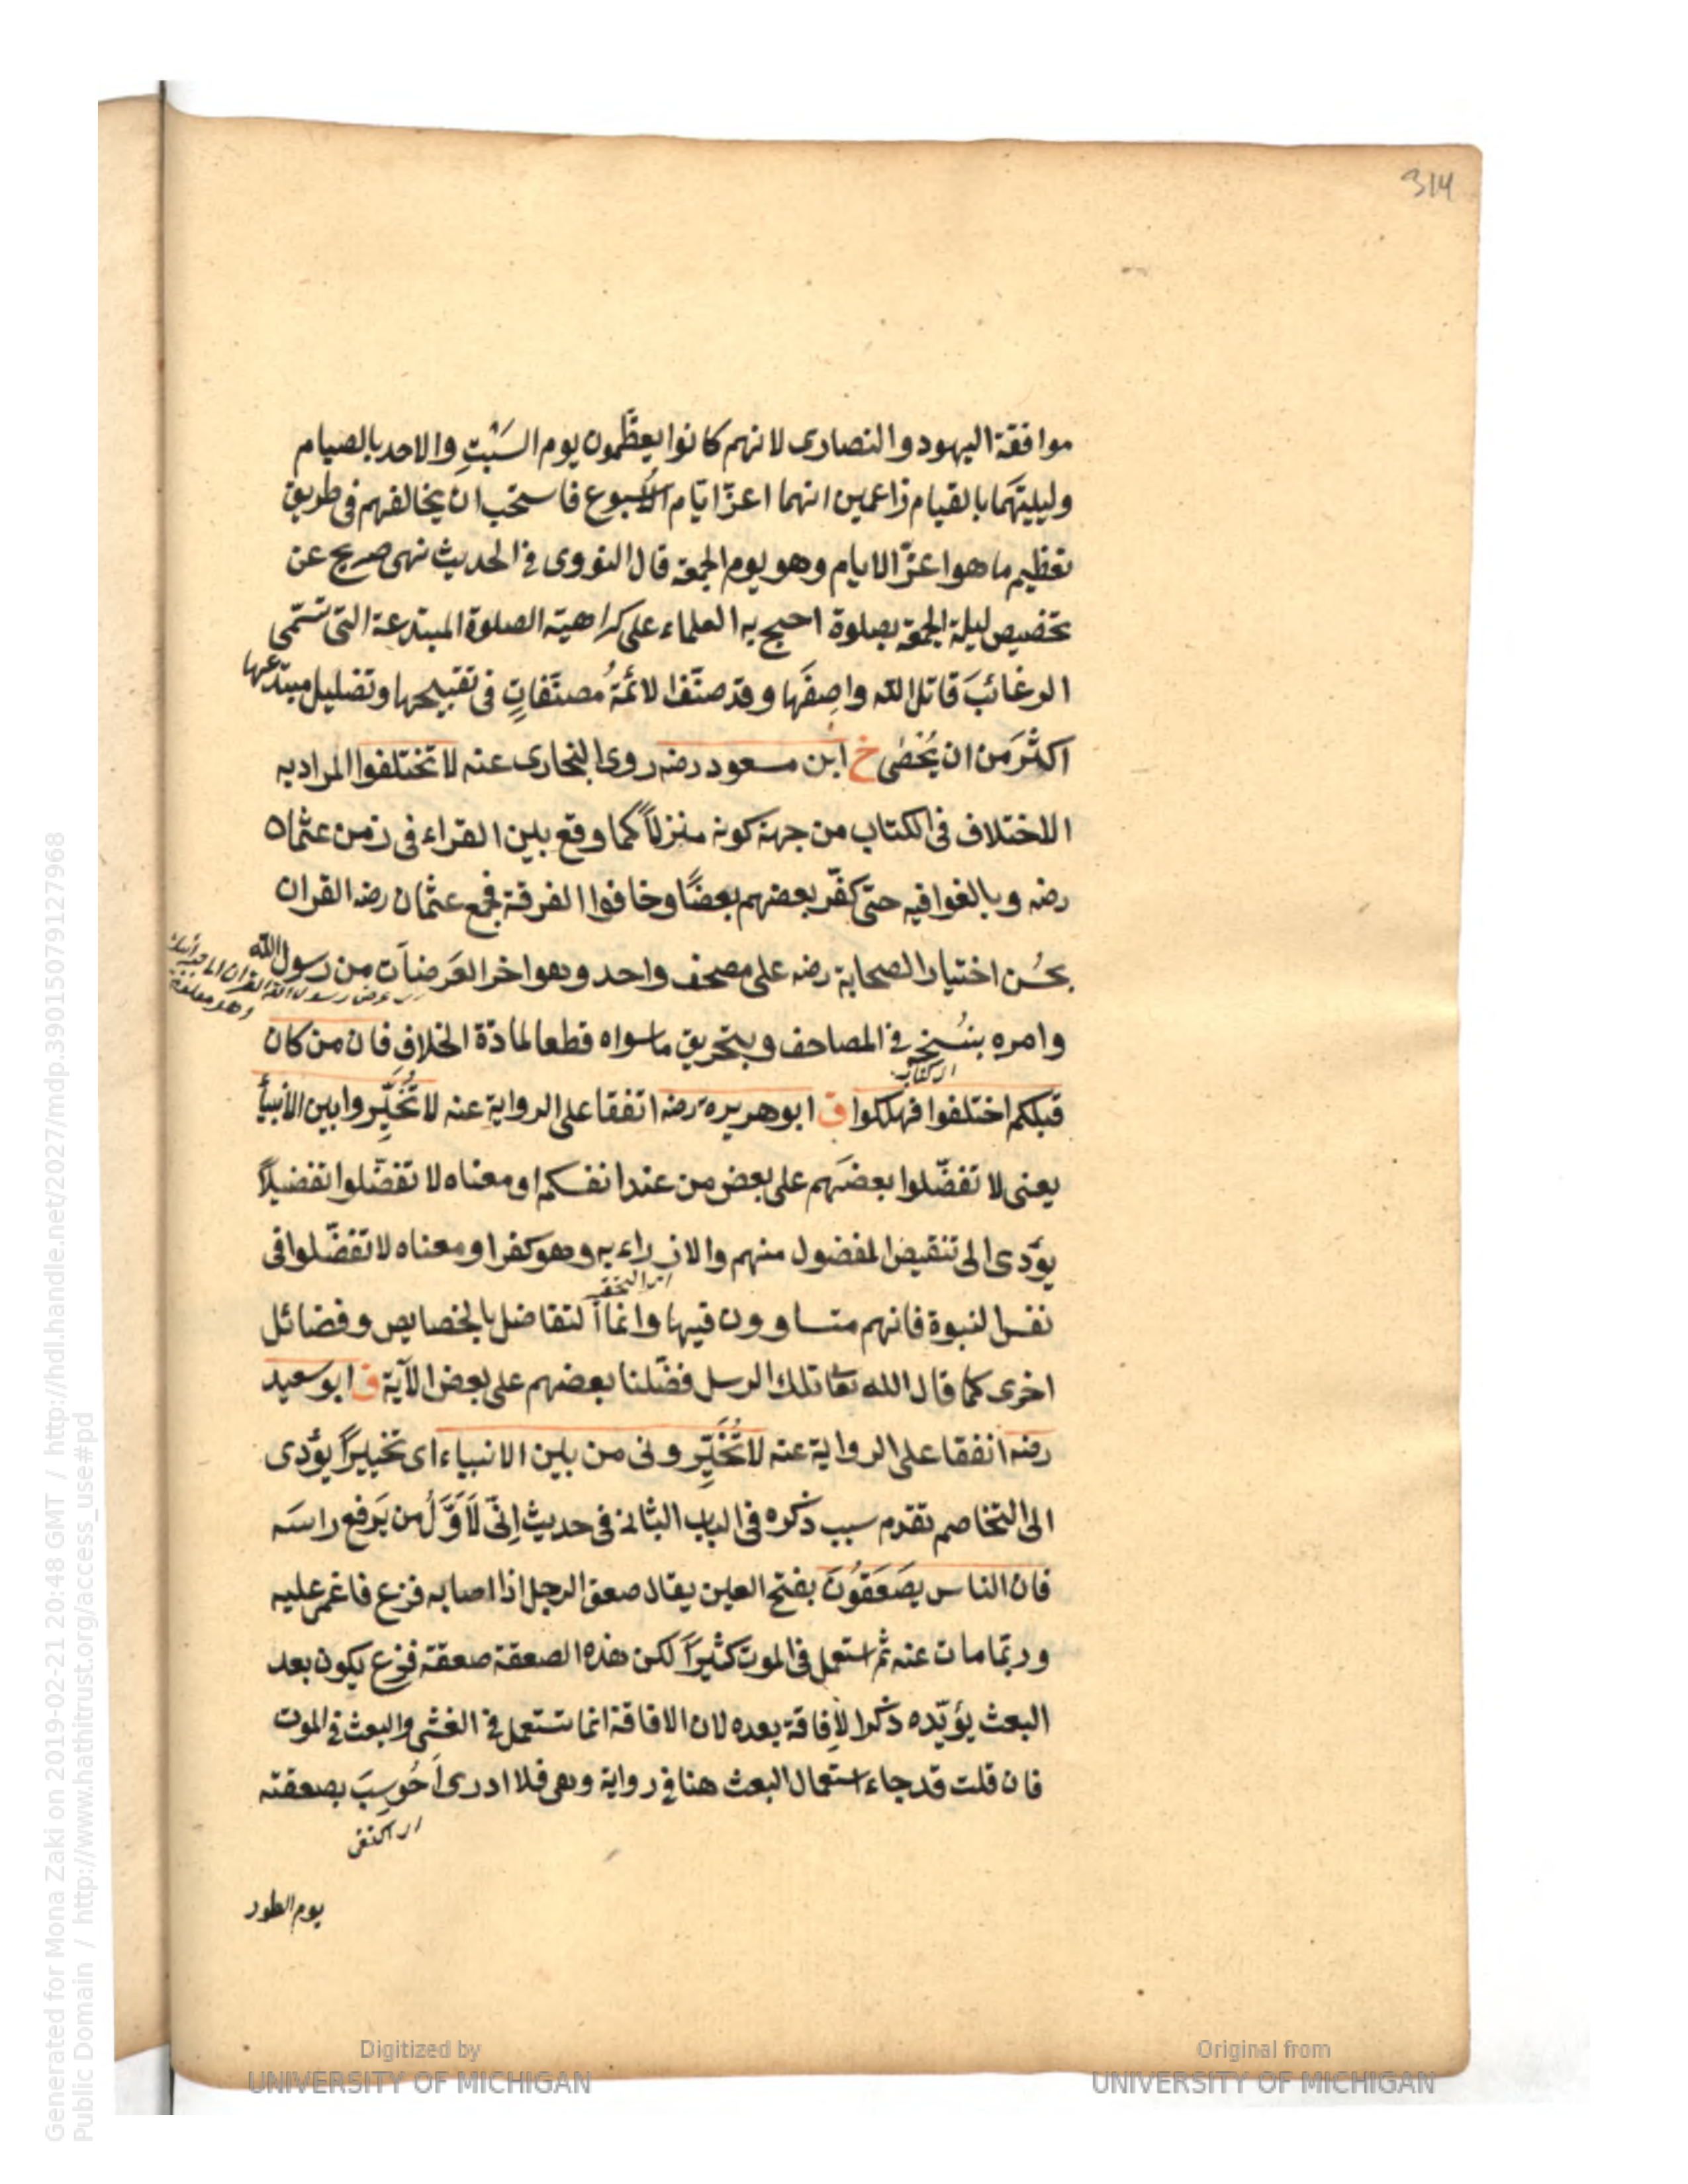 314
موافقة اليهود والنصارى لانهم كانوا يعظّمون يوم السَبْتِ والاحد بالصيام
وليليتهَما بالقيام زاعمين انهما اعزّ ايّام الاُسبوع فاستحب ان يخالفهم فى طريق
تعظيم ما هو اعزّ الايام وهو يوم الجمعة قال النووى فى الحديث نهى صريح عن
تخصيص ليلة الجمعة بصلوة احتج به العلماء على كراهية الصلوة المبتدعة التى تسمّى
الرغائبَ قاتل الله واصِفَها وقد صنّف الائمةُ مصنّفاتٍ فى تقبيحها وتضليل مبتدعها
اكثرَ من ان يُحْصٰى خ ابن مسعود رضه روى البخارى عنه لا تختلفوا المراد به
الاختلاف فى الكتاب من جهة كونه منزلاً كما وقع بين القراء فى زمن عثمان
رضه وبالغوا فيه حتى كفّر بعضهم بعضًا وخافوا الفرقة فجمع عثمان رضه القران
بحُسن اختيار الصحابة رضه على مصحف واحد وهو اخر العَرضات من رسول الله
عرض رسول الله القران
وامره بنُسخه فى المصاحف وبتحريق ما سواه قطعا لمادّة الخلاف فان من كان
الكتاب
قبلكم اختلفوا فهلكوا ق ابو هريرة رضه اتفقا على الرواية عنه لا تُخَيِّروا بين الانبيأ
يعنى لا تفضّلوا بعضَهم على بعض من عند انفسكم او معناه لا تفضّلوا تفضيلاً
يؤدى الى تنقيص المفضول منهم والازراء به وهو كفر او معناه لا تفضّلوا فى
نفس النبوة فانهم متساوون فيها وانما التفاضل بالخصايص وفضائل
اخرى كما قال الله تعا تلك الرسل فضّلنا بعضهم على بعض الآية ق ابو سعيد
رضه اتفقا على الرواية عنه لا تُخَيِّرونى من بين الانبياء اى تخييرًا يؤدى
الى التخاصم تقدم سبب ذكره فى الباب الثانى فى حديث اِنّى لَاَوَّلُ من يَرفع راسَه
فان الناس يصعَقُونَ بفتح العين يقال صعق الرجل اذا اصابه فزع فاغمى عليه
وربّما مات عنه ثم استعمل فى الموت كثيرًا لكن هذه الصعقة صعقة فزع يكون بعد
البعث يؤيّده ذكر الاِفاقة بعده لان الافاقة انما تستعمل فى الغشى والبعث فى الموت
فان قلت قد جاء استعمال البعث هنا فى رواية وهى فلا ادرى اَحُوسِبَ بصعقته
يوم الطور
Generated for Mona Zaki on 2019-02-21 20:48 GMT / http://hdl.handle.net/2027/mdp.39015079127968
Public Domain / http://www.hathitrust.org/access_use#pd
Digitized by
UNIVERSITY OF MICHIGAN
Original from
UNIVERSITY OF MICHIGAN